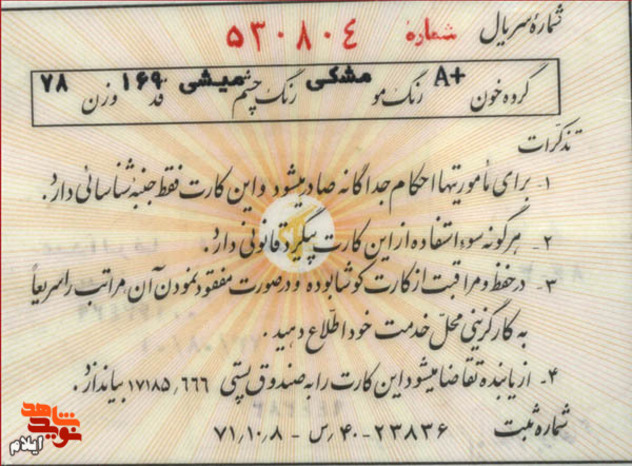 شمارهٔ سریال شمارهٔ ۵۳۰۸۰۴
گروه خون A+ رنگ مو مشکی رنگ چشم میشی قد ۱۶۹ وزن ۷۸
تذکرات
۱- برای مأموریتها احکام جداگانه صادر میشود و این کارت فقط جنبهٔ شناسائی دارد.
۲- هرگونه سوء استفاده از این کارت پیگرد قانونی دارد.
۳- در حفظ و مراقبت از کارت کوشا بوده و در صورت مفقود نمودن آن مراتب را سریعاً
به کارگزینی محلّ خدمت خود اطّلاع دهید.
۴- از یابنده تقاضا میشود این کارت را به صندوق پستی ۱۷۱۸۵٫۶۶۶ بیاندازد.
شمارهٔ ثبت ۲۳۸۳۶-۴۰ رس - ۷۱٫۱۰٫۸
نوید شاهد
ایلام